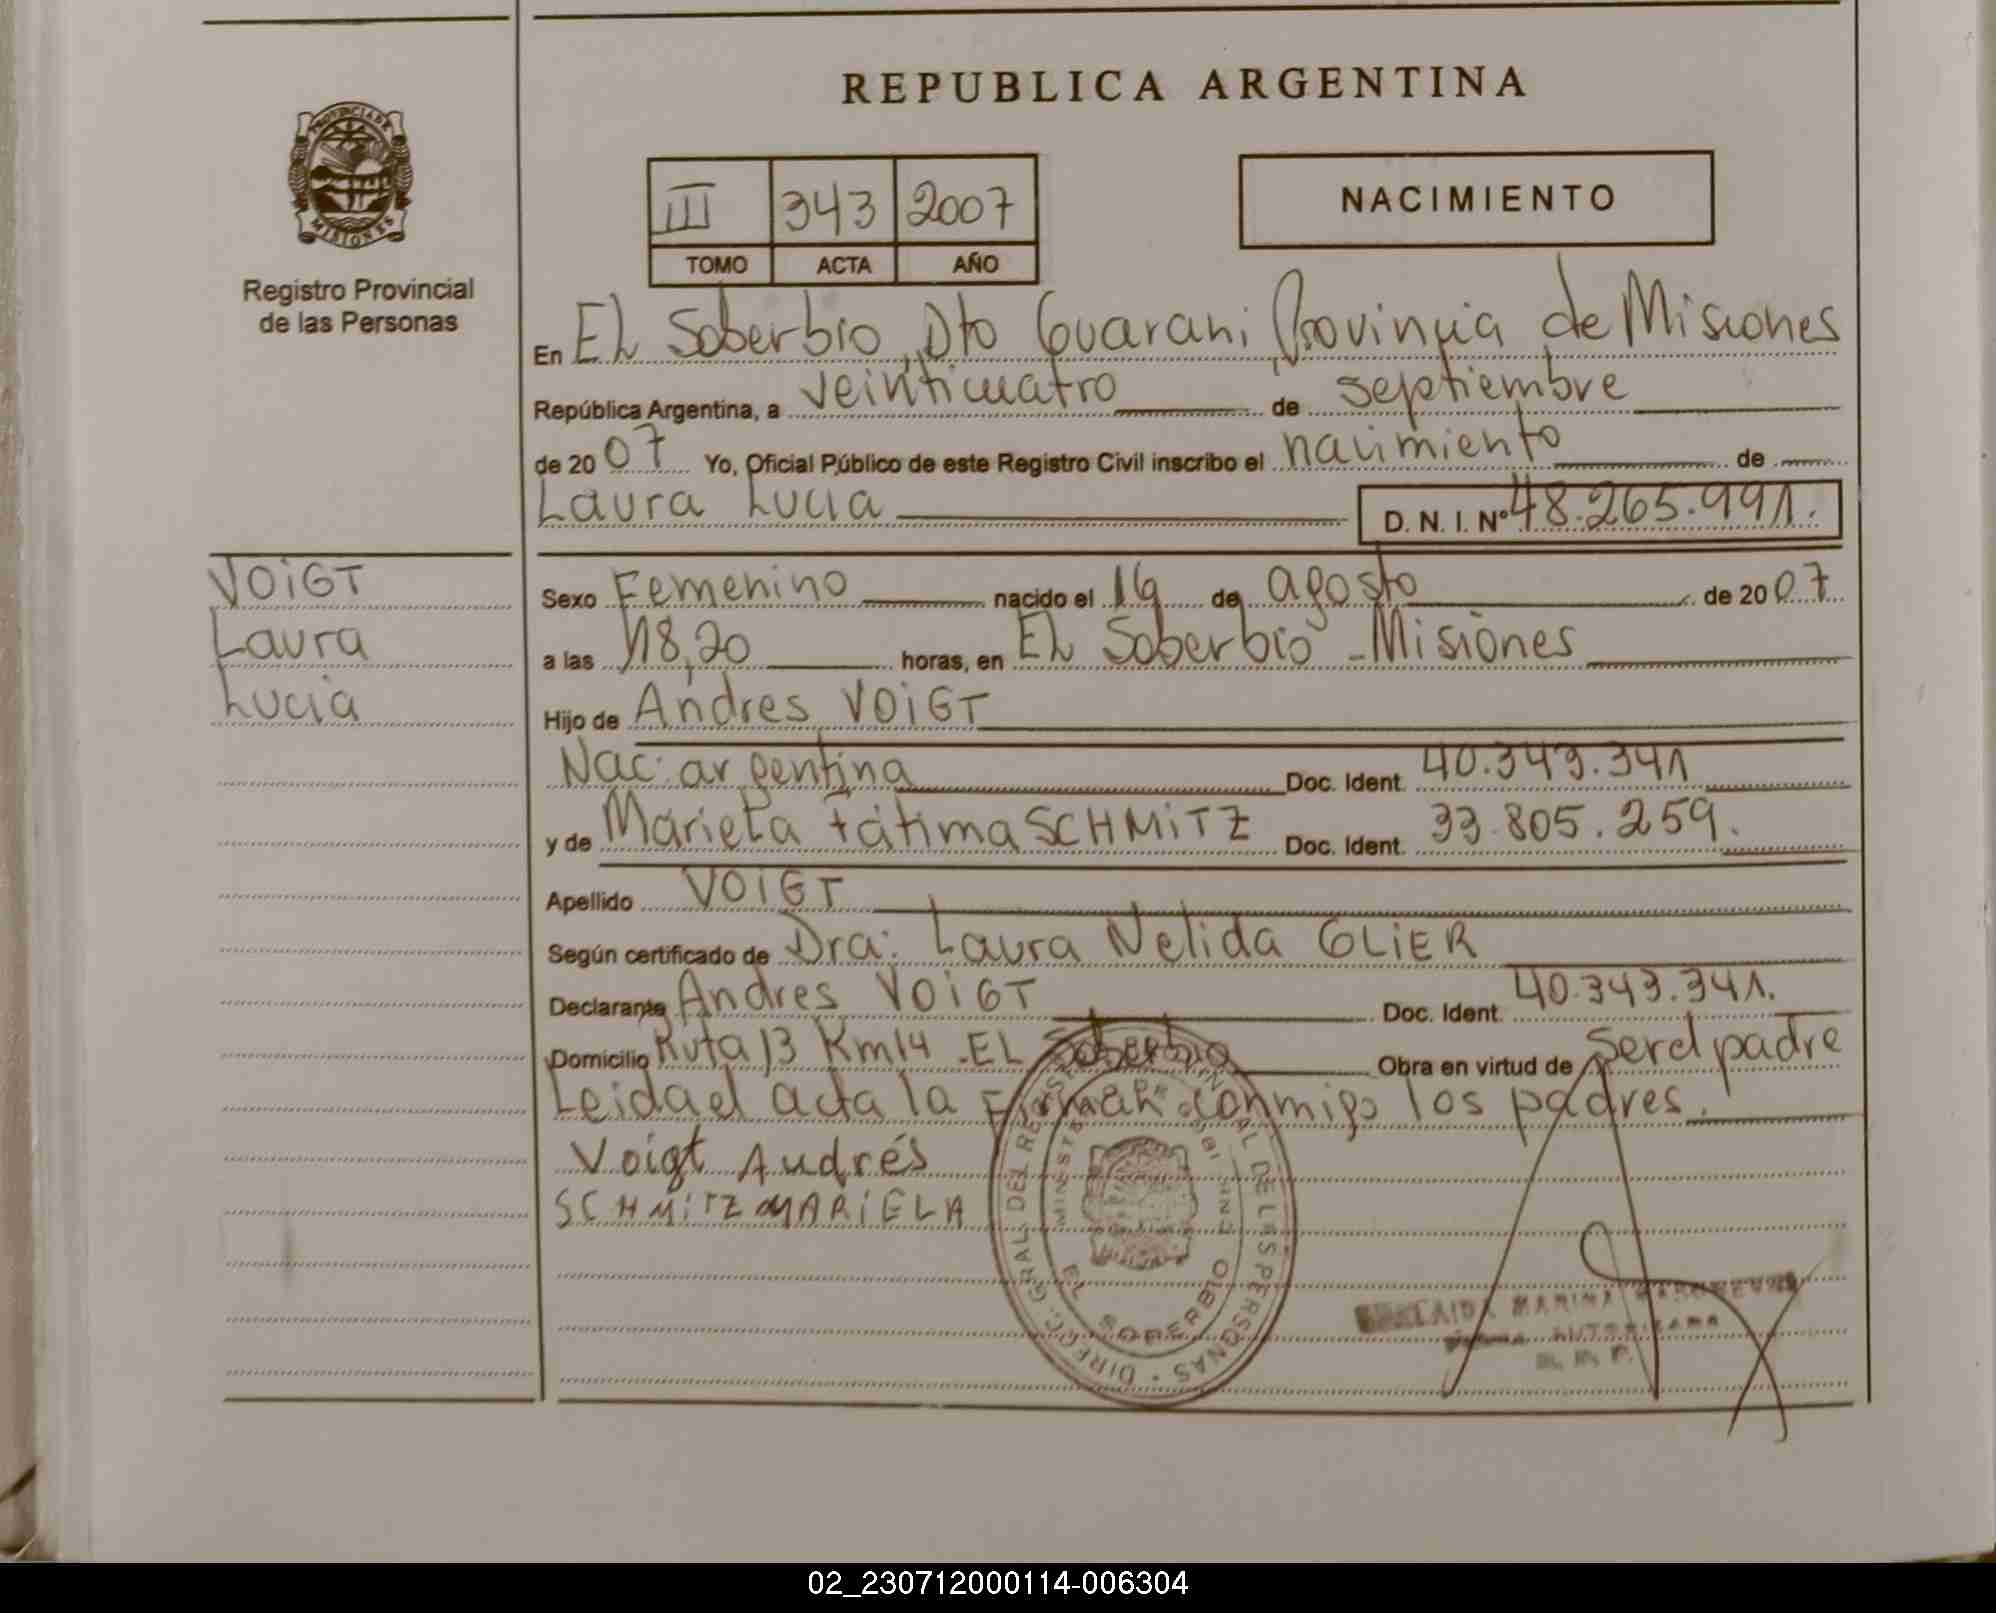 REPUBLICA ARGENTINA
PROVINCIA DE
MISIONES
Registro Provincial
de las Personas
III 343 2007
TOMO ACTA AÑO
NACIMIENTO
En EL Soberbio, Dto Guarani, Provincia de Misiones
República Argentina, a veinticuatro de septiembre
de 2007 Yo, Oficial Público de este Registro Civil inscribo el nacimiento de
Laura Lucia D. N. I. Nº 48.265.991.
VOIGT
Laura
Lucia
Sexo Femenino nacido el 16 de agosto de 2007
a las 18,20 horas, en EL Soberbio - Misiones
Hijo de Andres VOIGT
Nac: argentina Doc. Ident. 40.343.341
y de Mariela Fátima SCHMITZ Doc. Ident. 33.805.259.
Apellido VOIGT
Según certificado de Dra: Laura Nelida GLIER
Declarante Andres VOIGT Doc. Ident. 40.343.341.
Domicilio Ruta 13 Km 14 - EL Soberbio Obra en virtud de Ser el padre
Leida el acta la Firman conmigo los padres.
Voigt Andrés
SCHMITZ MARIELA
DIRECC. GRAL. DEL REGISTRO PROVINCIAL DE LAS PERSONAS
EL SOBERBIO
MARINA
AUTORIZADA
R. P. P.
02_230712000114-006304